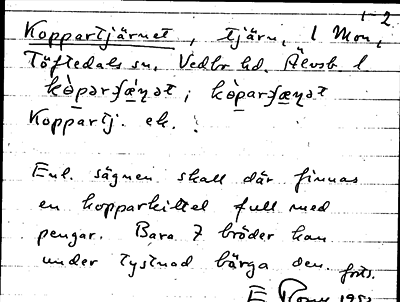 1-2
Koppartjärnet, tjärn, i Mon,
Töftedals sn. Vedbo hd. Älvsb. l
kòparʃæ̀ṇət ; kòparʃæṇət
Koppartj. ek.
Enl. sägnen skall där finnas
en kopparkittel full med
pengar. Bara 7 bröder kan
under tystnad bärga den. forts.
E